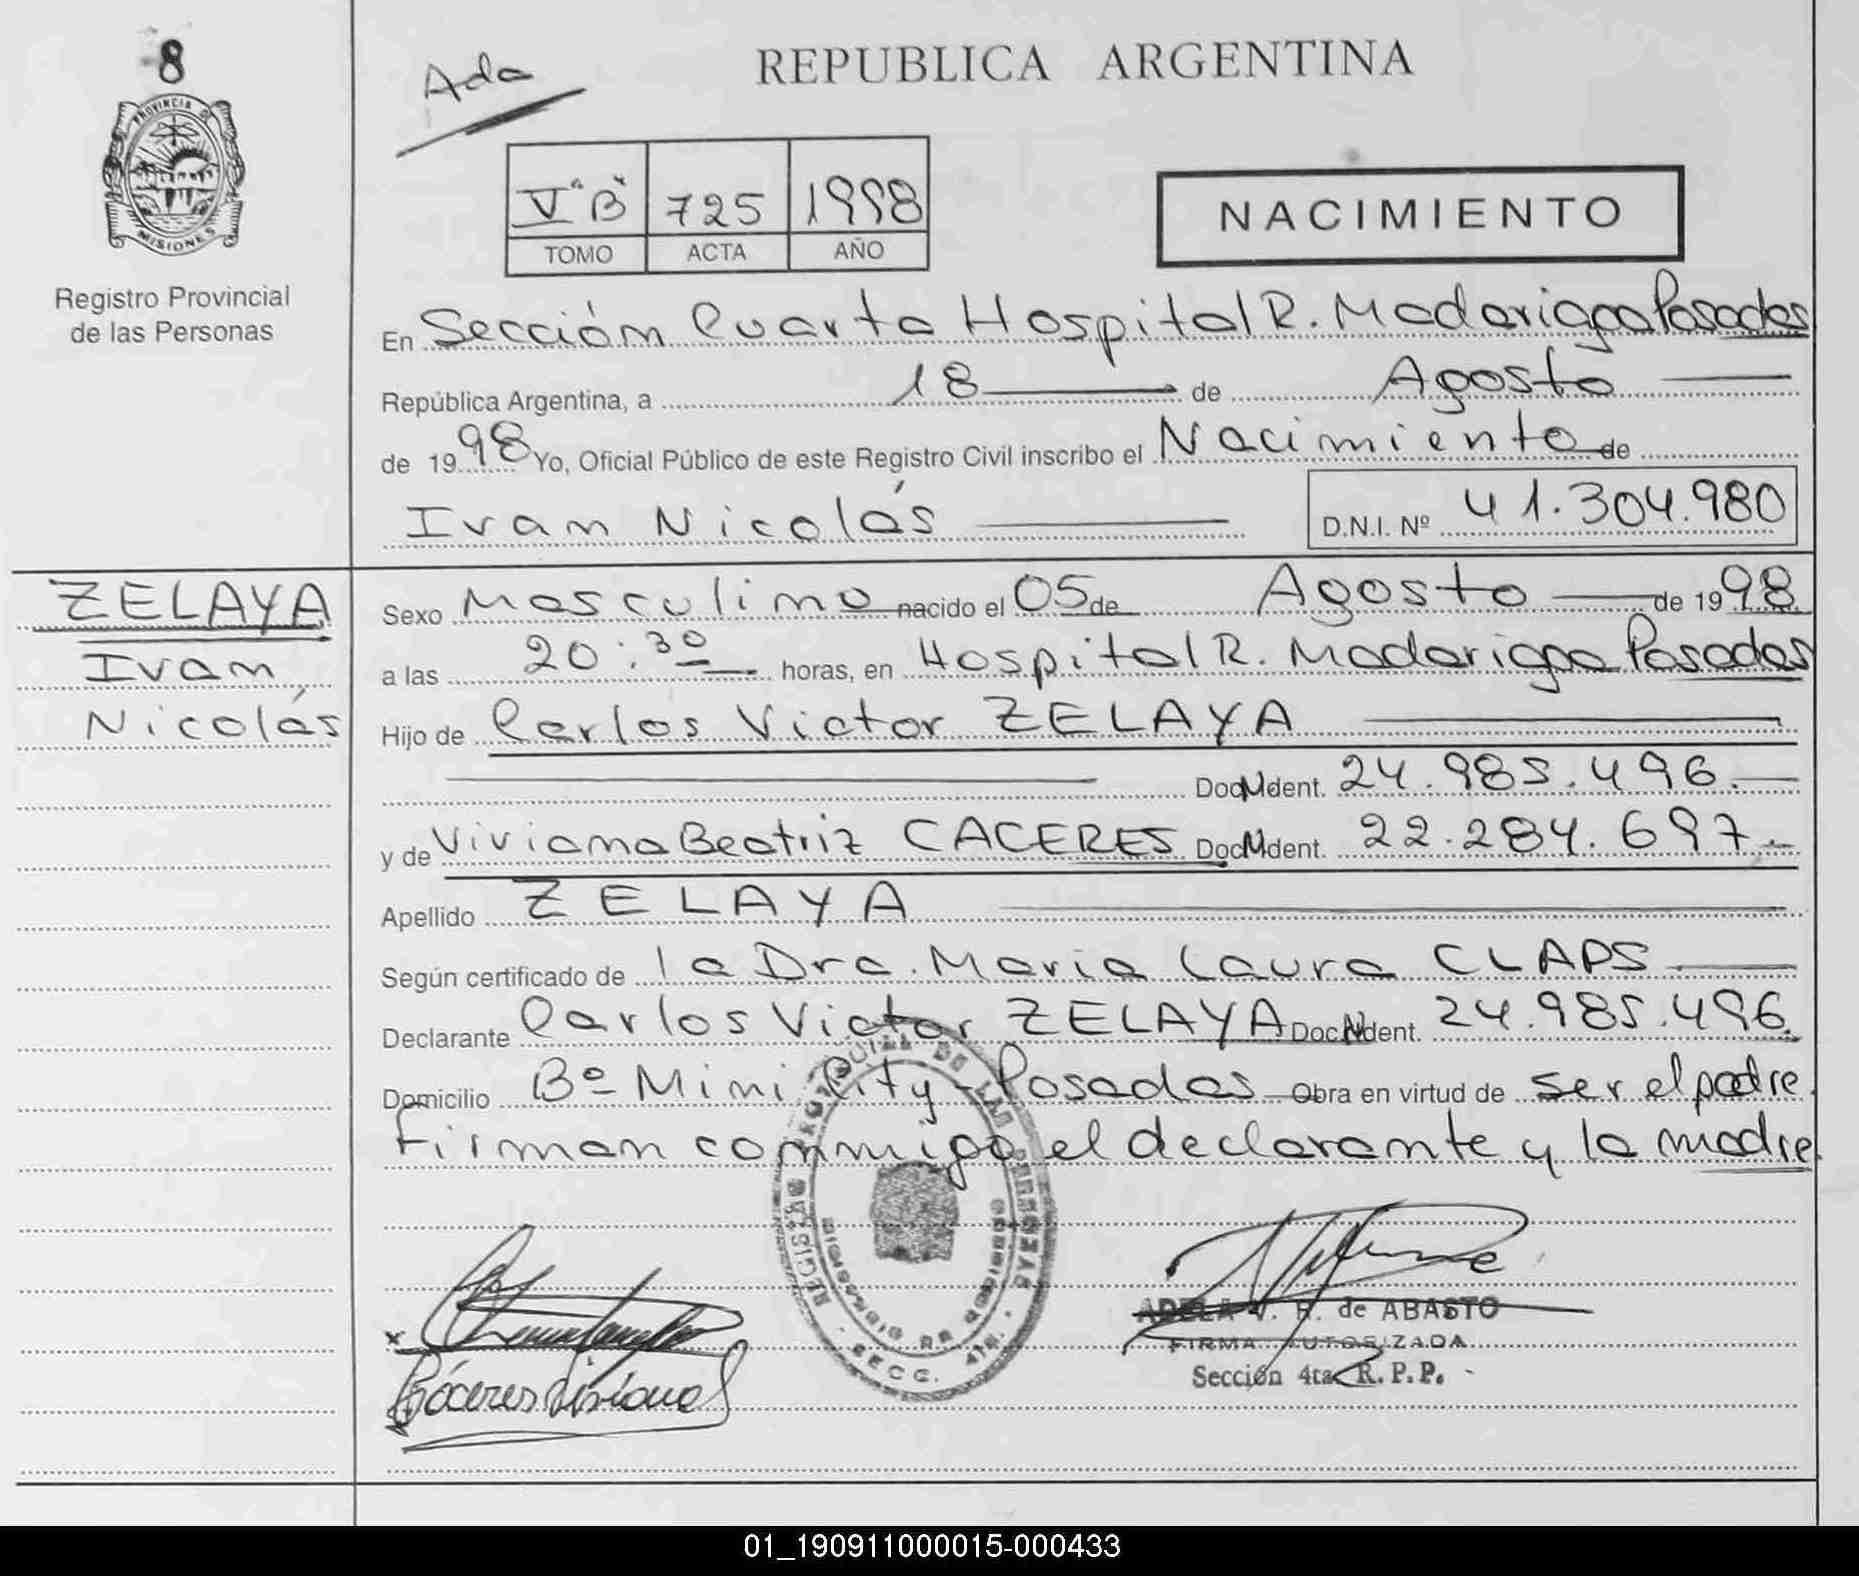 8
PROVINCIA DE
MISIONES
Registro Provincial
de las Personas
Ada
REPUBLICA ARGENTINA
V "B" 725 1998
TOMO ACTA AÑO
NACIMIENTO
En Sección Cuarta Hospital R. Madariaga Posadas
República Argentina, a 18 de Agosto
de 1998 Yo, Oficial Público de este Registro Civil inscribo el Nacimiento de
Ivan Nicolás D.N.I. Nº 41.304.980
ZELAYA
Ivan
Nicolás
Sexo Masculino nacido el 05 de Agosto de 1998
a las 20:30 horas, en Hospital R. Madariaga Posadas
Hijo de Carlos Victor ZELAYA
Doc. Ident. 24.985.496.
y de Viviana Beatriz CACERES Doc. Ident. 22.284.697.
Apellido ZELAYA
Según certificado de la Dra. Maria Laura CLAPS
Declarante Carlos Victor ZELAYA Doc. Ident. 24.985.496.
Domicilio Bº Mini City - Posadas Obra en virtud de ser el padre.
Firman conmigo el declarante y la madre
REGISTRO PROVINCIAL DE LAS PERSONAS
SECC. 4ta.
ADELA V. R. de ABASTO
FIRMA AUTORIZADA
Sección 4ta R.P.P.
x
Cáceres Viviana
01_190911000015-000433